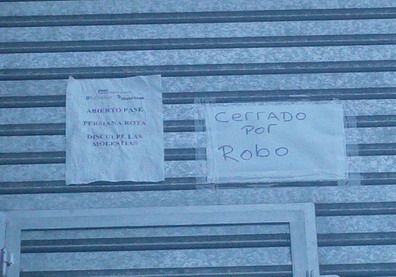 ABIERTO PASE
PERSIANA ROTA
DISCULPE LAS
MOLESTIAS
CERRADO
POR
ROBO